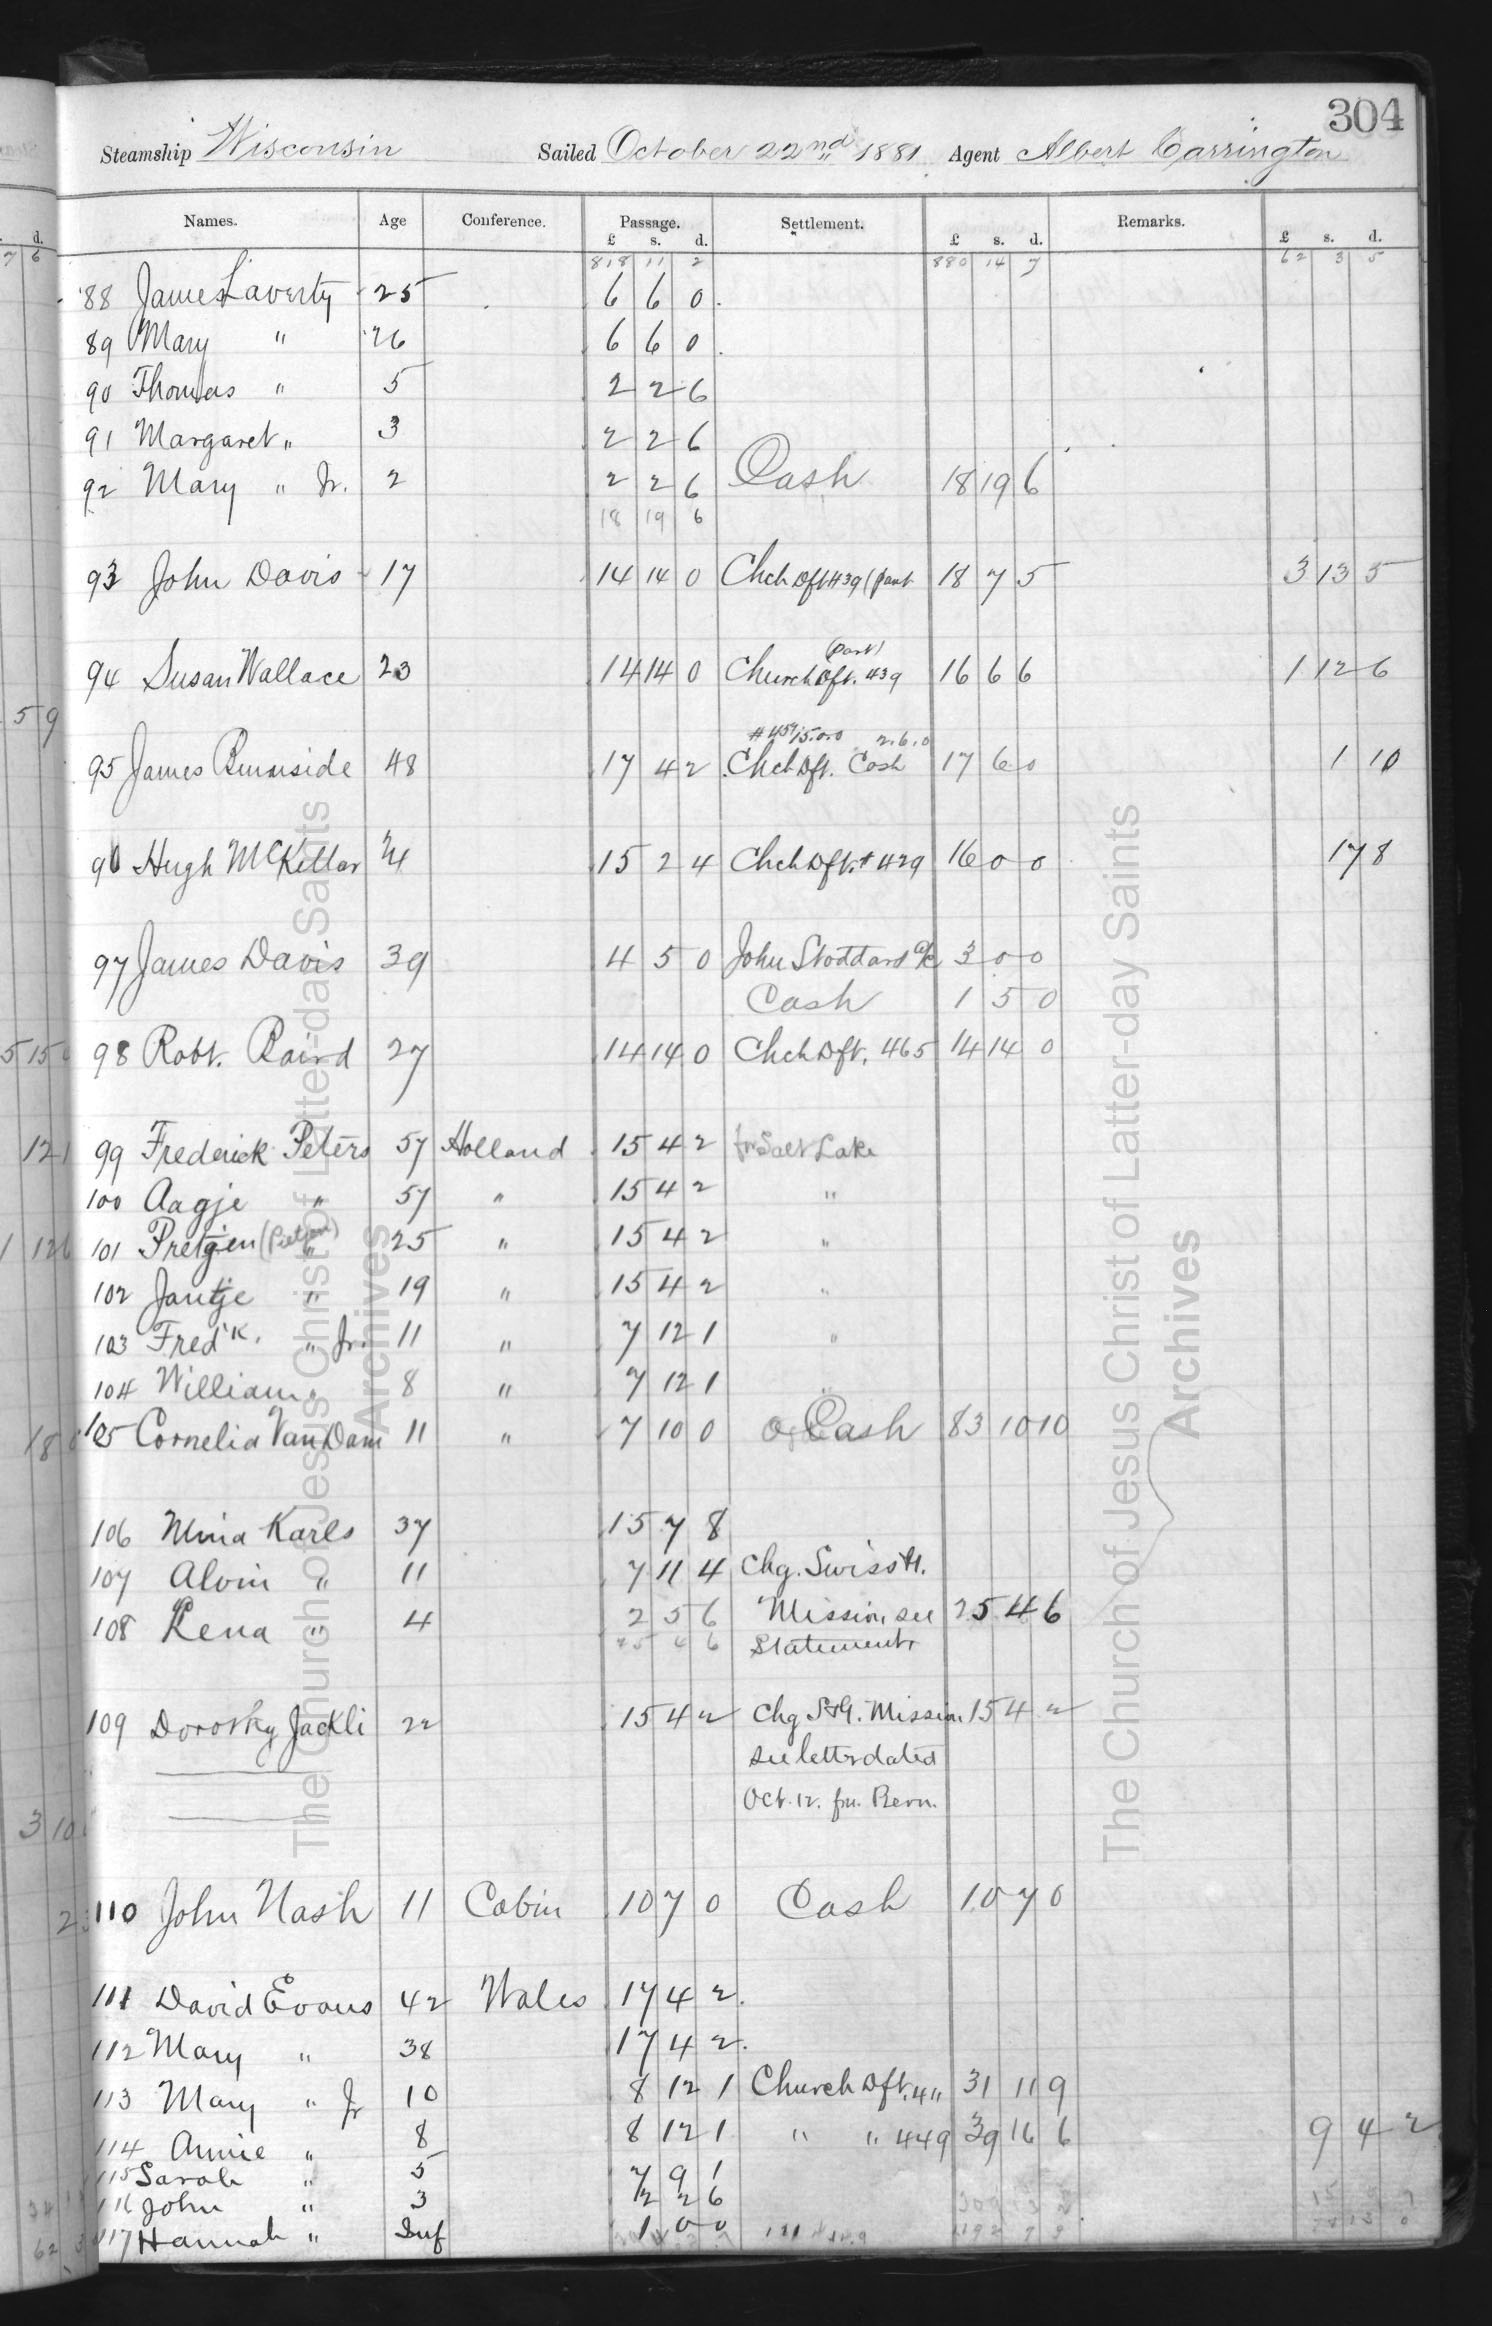 304
Steamship Wisconsin Sailed October 22nd 1881 Agent Albert Carrington
Names. Age Conference. Passage. Settlement. Remarks.
£ s. d. £ s. d. £ s. d.
818 11 2 880 14 7 62 3 5
88 James Laverty 25 6 6 0
89 Mary " 26 6 6 0
90 Thomas " 5 2 2 6
91 Margaret " 3 2 2 6
92 Mary " Jr. 2 2 2 6 Cash 18 19 6
18 19 6
93 John Davis 17 14 14 0 Chch Dft #39 (part 18 7 5 3 13 5
(part)
94 Susan Wallace 23 14 14 0 Church Dft. 439 16 6 6 1 12 6
2.6.0
95 James Burnside 48 17 4 2 Chch Dft. Cash 17 6 0 1 10
96 Hugh McKellar 15 2 4 Chch Dft. # 429 16 0 0 17 8
97 James Davis 39 4 5 0 John Stoddard a/c 3 0 0
Cash 1 5 0
98 Robt. Baird 27 14 14 0 Chch Dft. 465 14 14 0
99 Frederick Peters 57 Holland 15 4 2 for Salt Lake
100 Aagje " 57 " 15 4 2 "
101 Pretgen " 25 " 15 4 2 "
102 Jantje " 19 " 15 4 2 "
103 Fred'k. " Jr. 11 " 7 12 1 "
104 William " 8 " 7 12 1 "
105 Cornelia Van Dam 11 " 7 10 0 Cash 83 10 10
106 Mina Karls 37 15 7 8
107 Alvin " 11 7 11 4 Chg. Swiss &
108 Rena " 4 2 5 6 Mission see 25 4 6
25 4 6 Statement
109 Dorothy Jackli 22 15 4 2 Chg S&G. Mission 15 4 2
see letter dated
Oct. 12. fm. Bern.
110 John Nash 11 Cabin 10 7 0 Cash 10 7 0
111 David Evans 42 Wales 17 4 2
112 Mary " 38 17 4 2
113 Mary " Jr 10 8 12 1 Church Dft. 411 31 11 9
114 Annie " 8 8 12 1 " " 449 39 16 6 9 4 2
115 Sarah " 5 7 9 1
116 John " 3 2 2 6
117 Hannah " Inf 1 0 0
The Church of Jesus Christ of Latter-day Saints
Archives
The Church of Jesus Christ of Latter-day Saints
Archives